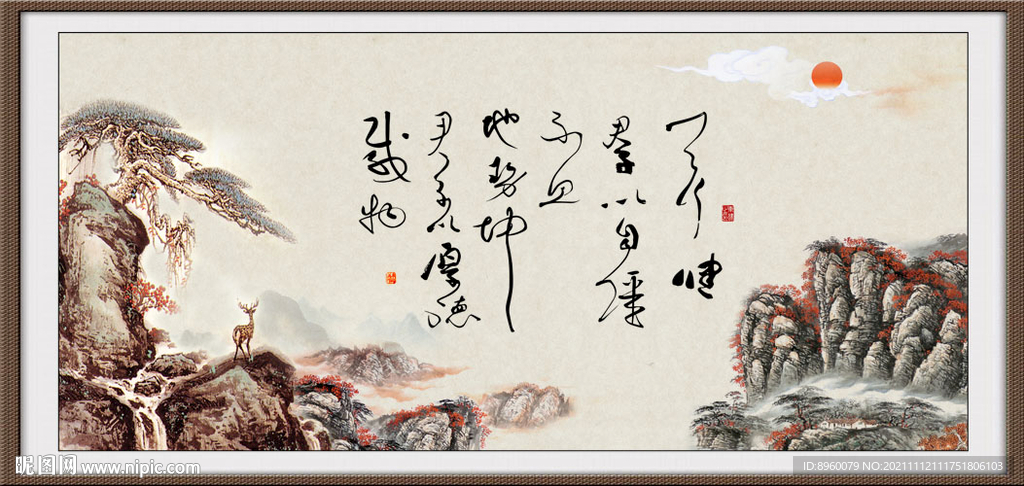 天行健
君子以自强
不息
地势坤
君子以厚德
载物
昵图网 www.nipic.com
ID:8960079 NO:20211112111751806103